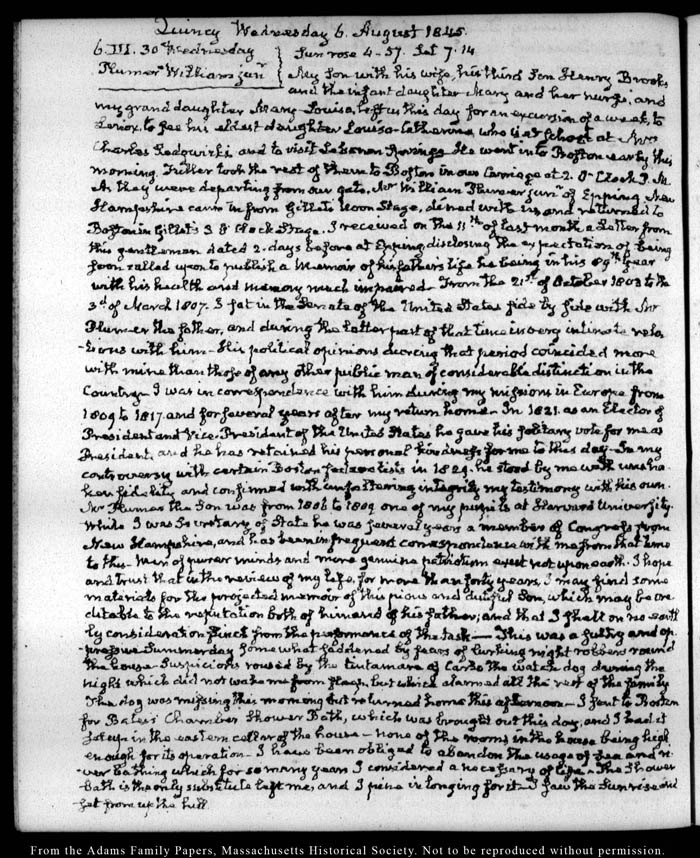 Quincy Wednesday 6. August 1845.
6. III. 30 Wednesday
Plumer William junr
Sun rose 4-57. Set 7.14
My Son with his wife, his third Son Henry Brooks
and the infant daughter Mary and her nurse, and
my grand daughter Mary-Louisa, left us this day for an excursion of a week, to
Lenox, to see his eldest daughter Louisa-Catherine, who is at School at Mrs
Charles Sedgwick's, and to visit Lebanon Springs. He went in to Boston early this
morning. Kirtler took the rest of them to Boston in our Carriage at 2. O-Clock P.M.
As they were departing from our gate, Mr William Plumer junr of Epping New
Hampshire came in from Gillett's Noon Stage, dined with us and returned to
Boston in Gillet's 3 O Clock Stage. I received on the 11th of last month a Letter from
this gentleman dated 2. days before at Epping disclosing the expectation of being
soon called upon to publish a Memoir of his father's life he being in his 89th year
with his health and memory much impaired. From the 21st of October 1803 to the
3d of March 1807. I sat in the Senate of the United States side by side with Mr
Plumer the father, and during the latter part of that time in very intimate rela-
-tions with him. His political opinions during that period coincided more
with mine than those of any other public man of considerable distinction in the
Country. I was in correspondence with him during my missions in Europe from
1809 to 1817. and for several years after my return home. In 1821. as an Elector of
President and Vice-President of the United States he gave his solitary vote for me as
President, and he has retained his personal kindness for me to this day. In my
controversy with certain Boston federalists in 1829. he stood by me with unsha-
ken fidelity and confirmed with unfaltering integrity my testimony with his own.
Mr Plumer the Son was from 1806 to 1809 one of my pupils at Harvard University.
While I was Secretary of State he was several years a member of Congress from
New Hampshire, and has been in frequent correspondence with me from that time
to this. Men of purer minds and more genuine patriotism exist not upon earth. I hope
and trust that in the review of my life, for more than forty years, I may find some
materials for the projected memoir of this pious and dutiful Son, which may be cre
ditable to the reputation both of him and of his father, and that I shall on no earth
ly consideration flinch from the performance of the task — This was a sultry and op-
-pressive Summer day somewhat saddened by fears of lurking night robbers round
the house. Suspicions roused by the tintamare of Carlo the watch dog during the
night which did not wake me from sleep, but which alarmed all the rest of the family
The dog was missing this morning but returned home this afternoon - I sent to Boston
for Bates's Chamber Shower Bath, which was brought out this day, and I had it
set up in the eastern cellar of the house - none of the rooms in the house being high
enough for its operation - I have been obliged to abandon the usage of sea and ri-
-ver bathing which for so many years I considered a necessary of life - The Shower
bath is the only substitute left me, and I pine in longing for it. I saw the Sun rise and
set from up the hill
From the Adams Family Papers, Massachusetts Historical Society. Not to be reproduced without permission.